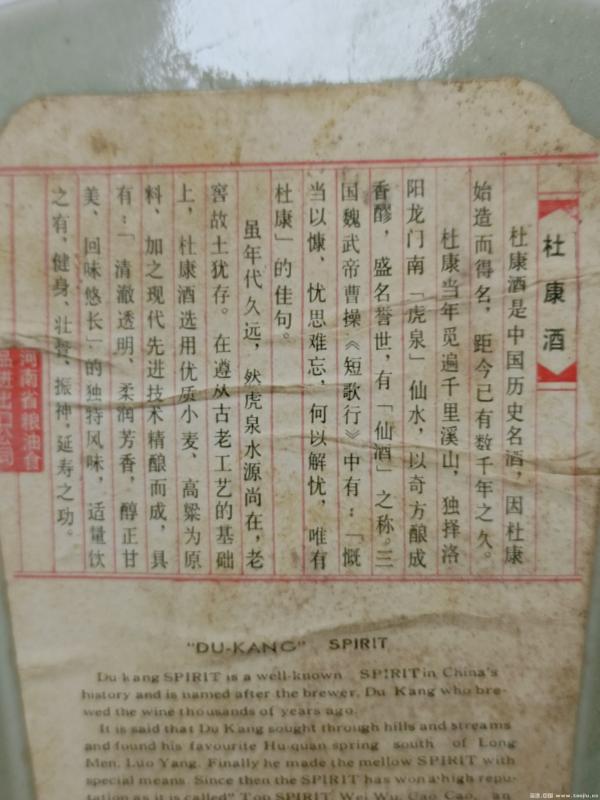 杜康酒
杜康酒是中国历史名酒，因杜康
始造而得名，距今已有数千年之久。
杜康当年觅遍千里溪山，独择洛
阳龙门南「虎泉」仙水，以奇方酿成
香醪，盛名誉世，有「仙酒」之称。三
国魏武帝曹操《短歌行》中有：「慨
当以慷，忧思难忘，何以解忧，唯有
杜康」的佳句。
虽年代久远，然虎泉水源尚在，老
窖故土犹存。在遵从古老工艺的基础
上，杜康酒选用优质小麦、高粱为原
料、加之现代先进技术精酿而成，具
有：「清澈透明、柔润芳香，醇正甘
美、回味悠长」的独特风味，适量饮
之有，健身、振神，延寿之功。
河南省粮油食
品进出口公司
"DU-KANG" SPIRIT
Du kang SPIRIT is a well-known SPIRIT in China's
history and is named after the brewer, Du Kang who bre-
wed the wine thousands of years ago.
It is said that Du Kang sought through hills and streams
and found his favourite Hu-quan spring south of Long
Men, Luo Yang. Finally he made the mellow SPIRIT with
special means. Since then the SPIRIT has won a high repu-
tation as it is called" Top SPIRIT. Wei Wu, Cao Cao, an